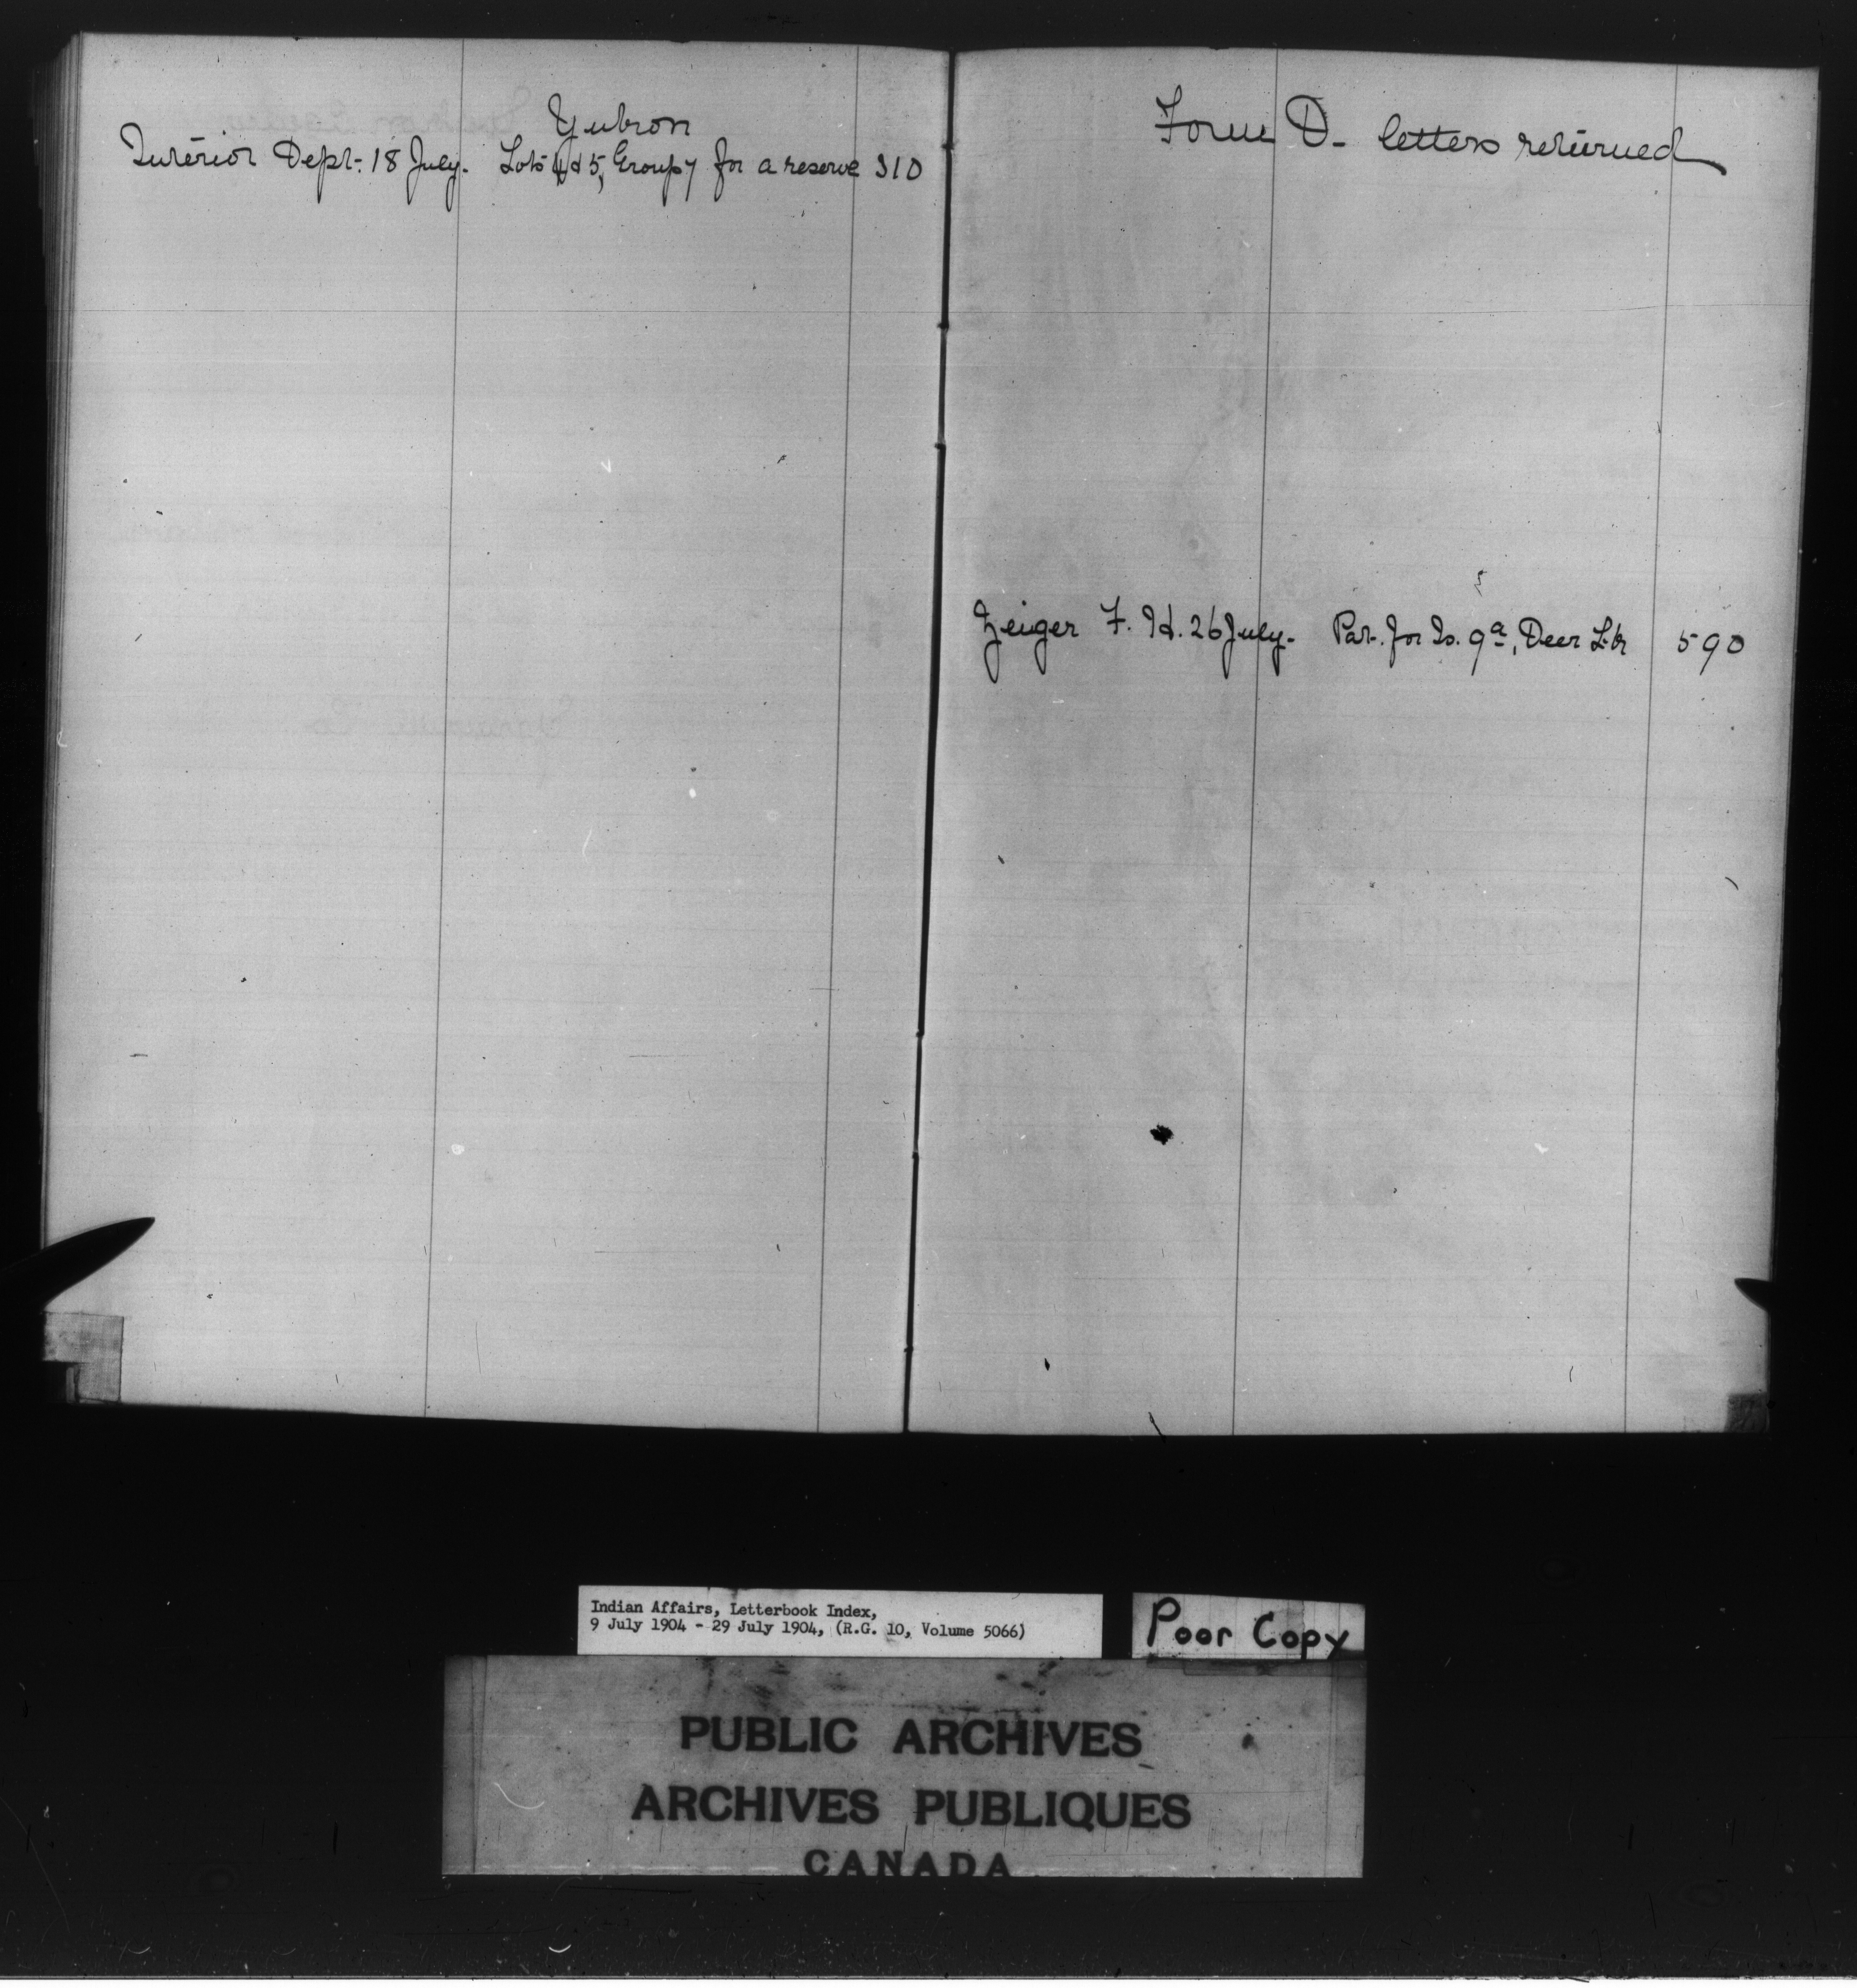 Yukon
Interior Dept: 18 July. Lots 4 & 5, Group 7 for a reserve 310
Form D- letters returned
Zeiger F. H. 26 July. Pat. for Is. 9ª, Deer 590
Indian Affairs, Letterbook Index,
9 July 1904 - 29 July 1904, (R.G. 10, Volume 5066)
Poor Copy
PUBLIC ARCHIVES
ARCHIVES PUBLIQUES
CANADA